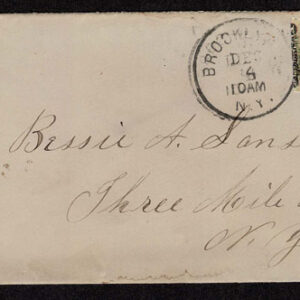 BROOKLYN
DEC
4
11 0AM
N.Y.
Bessie A. Sans
Three Mile
N. Y